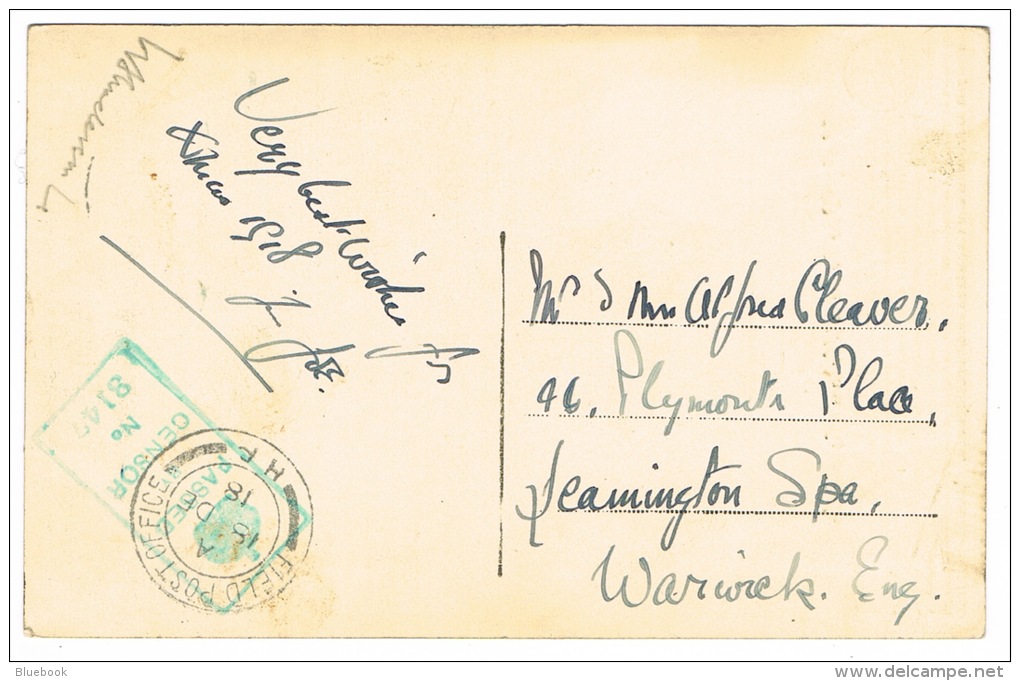 Very best wishes for
Xmas 1918
Mr & Mrs Alfred Cleaver,
46, Plymouth Place,
Leamington Spa,
Warwick. Eng.
PASSED
CENSOR
No
FIELD POST OFFICE
H P
A
18 DE
18
Bluebook
delcampe.net